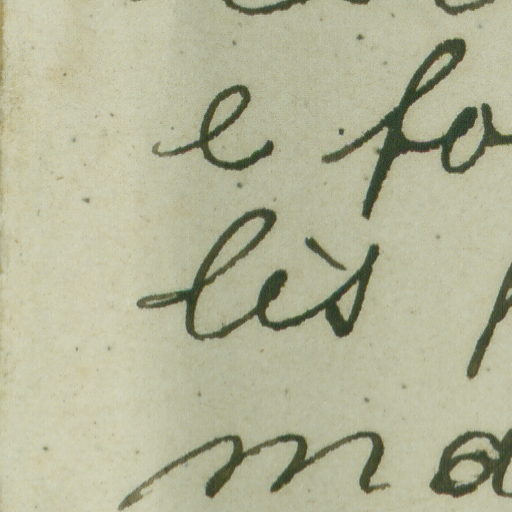 e fo
lès
ma